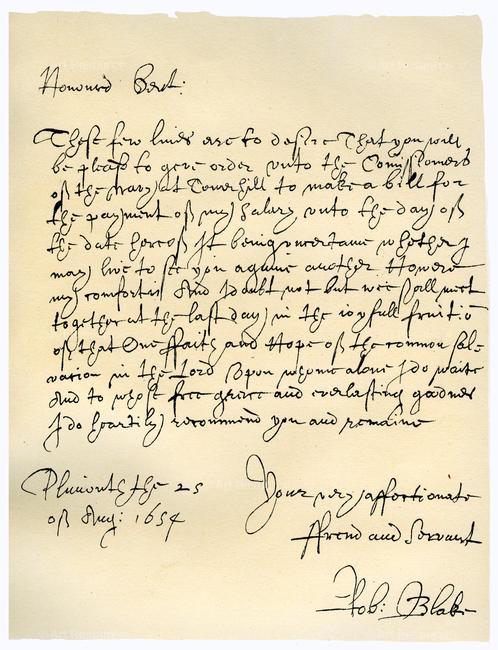 Honourd Sert:
These few lines are to desire That you will
be pleasd to geve order unto the Comissioners
off the navy at Towerhill to make a bill for
the payment off my salary unto the day off
the date hereoff It being uncertaine whether I
may live to see you againe another Howere
my comfort is And I doubt not but wee shall meet
together at the last day in the ioyfull fruitiō
off that One ffaith and Hope off the common sal-
vacion in the Lord Upon whome alone I do waite
And to whose free grace and everlasting goodnes
I do heartily recommend you and remaine
Plimouth the 25
off Aug: 1654
Your very affectionate
ffrend and Servant
Rob: Blake